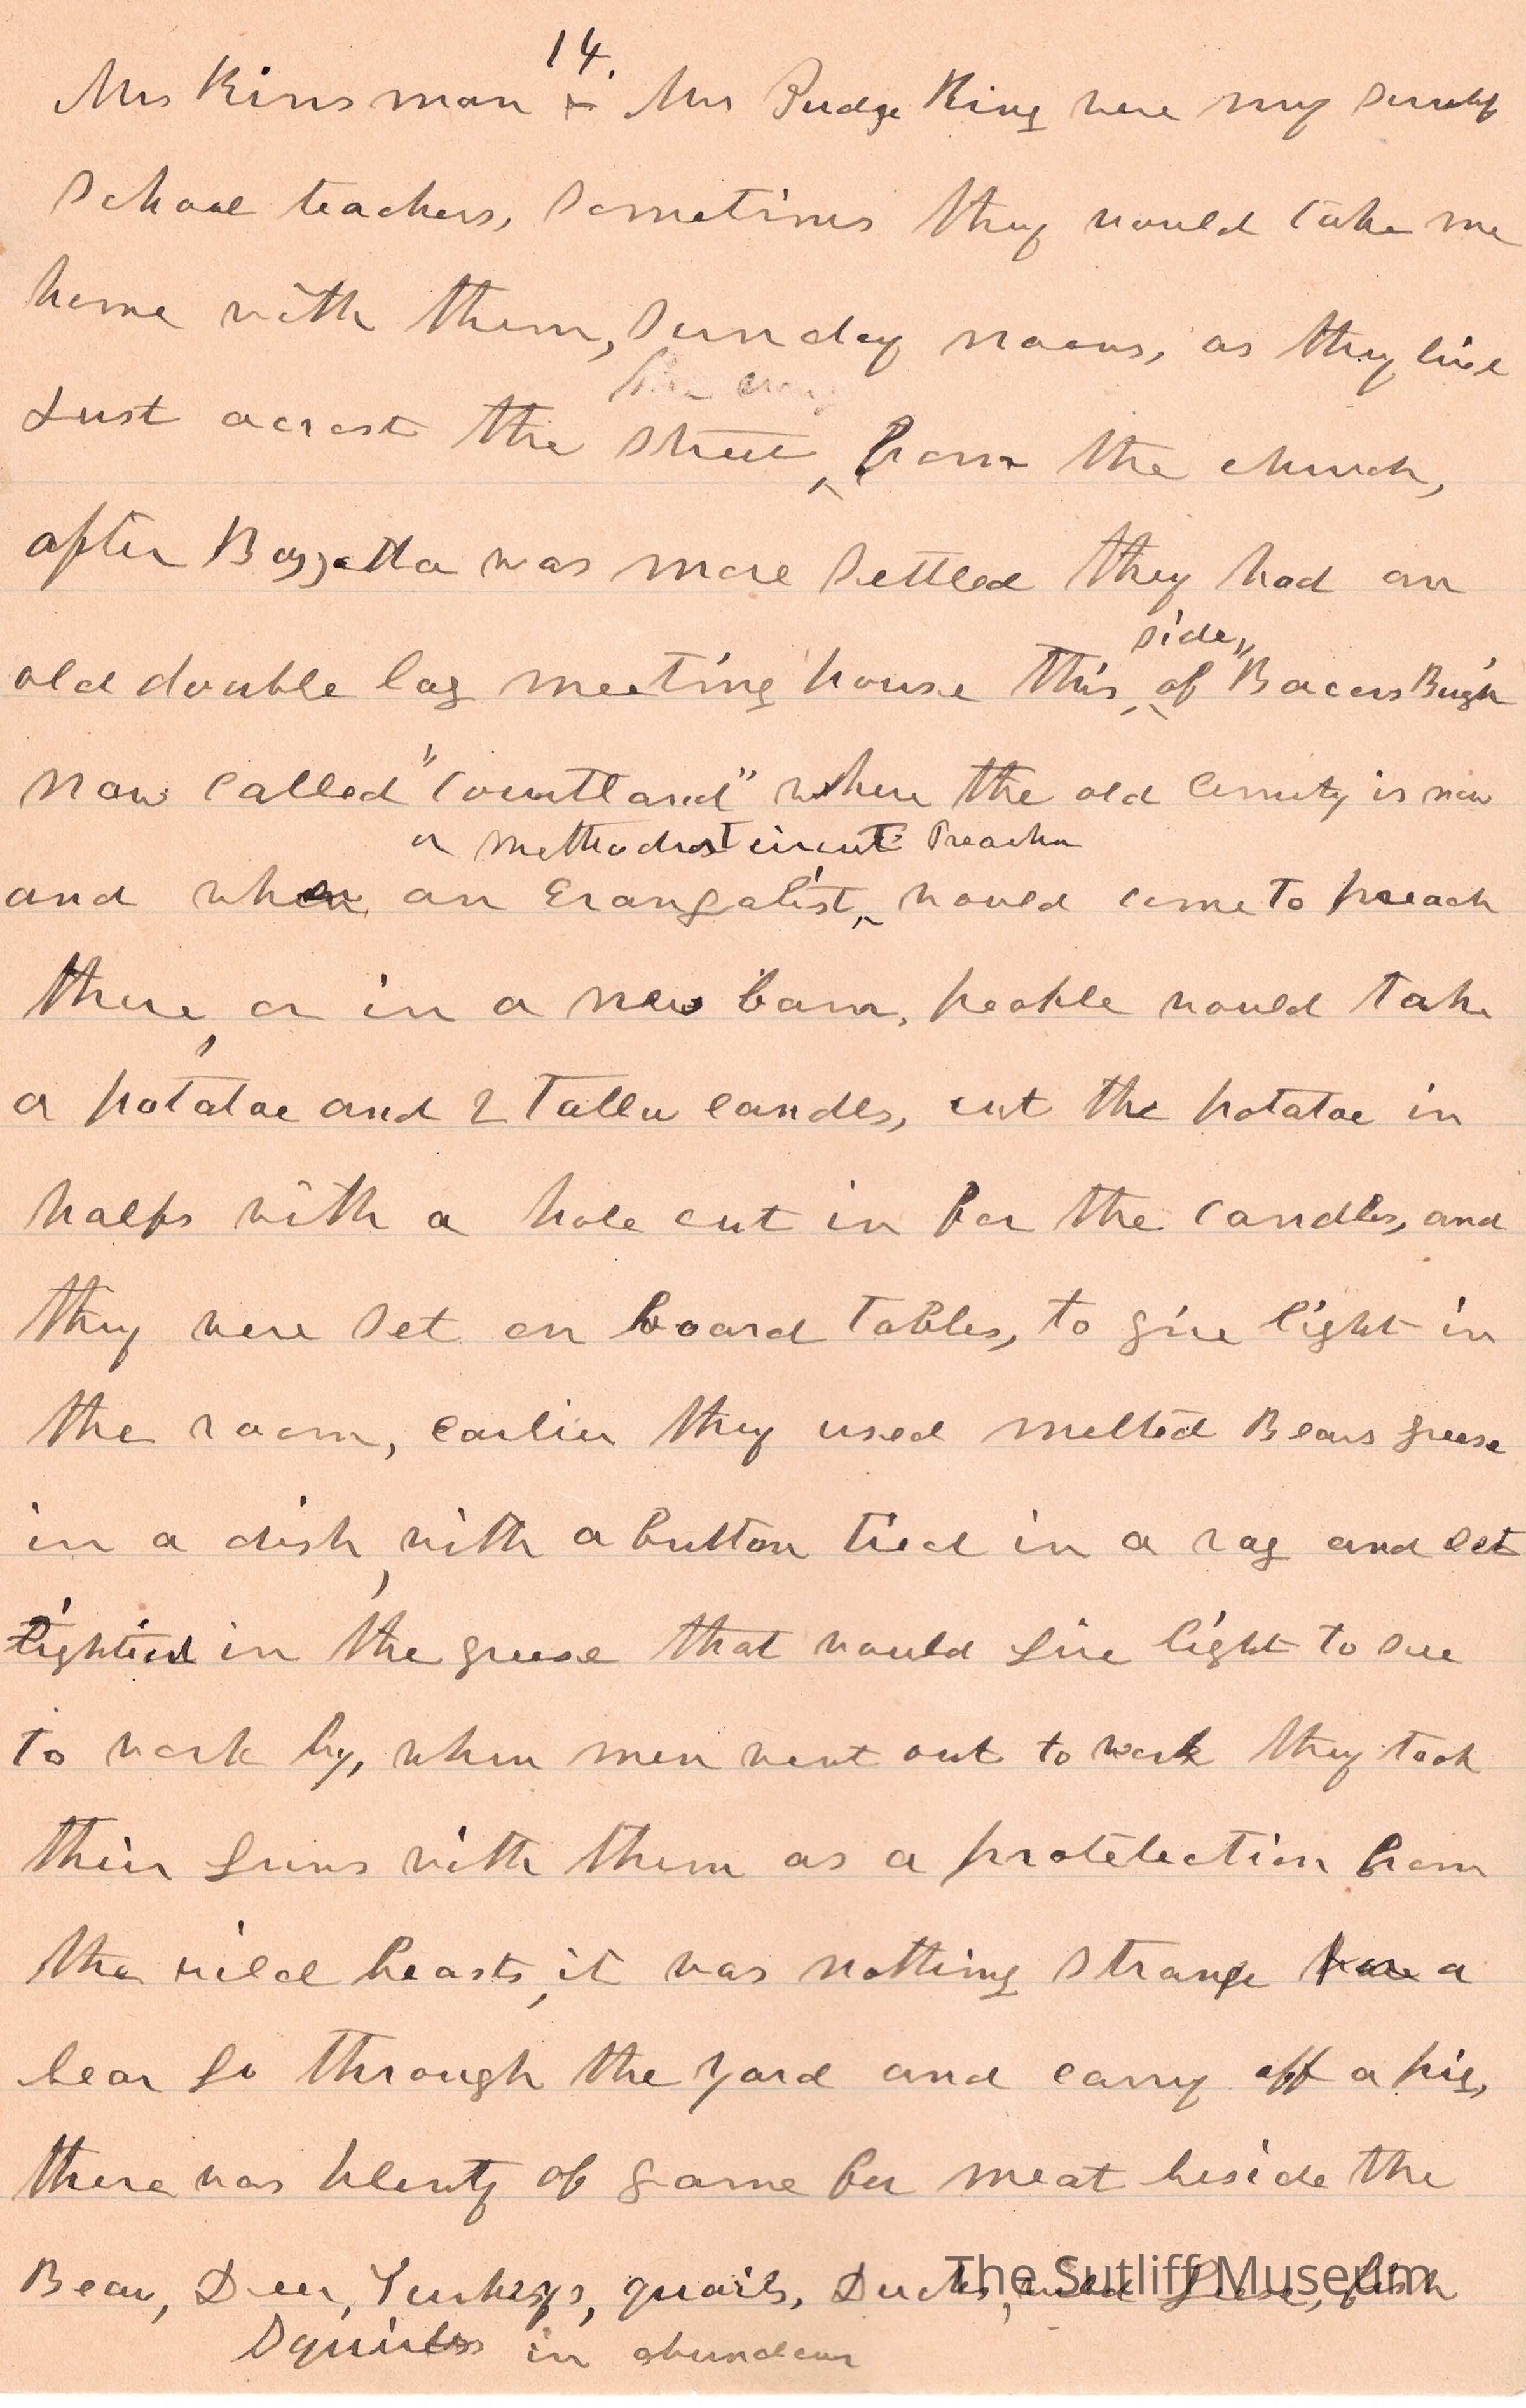 14.
Mrs Kinsman & Mrs Judge King were my Sunday
School teachers, Sometimes they would take me
home with them, Sunday noons, as they live
Just acrost the Street, from the church,
after Bazzetta was more Settled they had an
old double log meeting house this of Bacons Burgh
side,,
now called "Courtland" where the old Cemetry is now
or methodist circut Preacher
and when an Evangalist, would come to preach
there, or in a new barn, people would take
a potatoe and 2 Tallow candls, cut the potatoe in
halfs with a hole cut in for the Candles, and
they were Set on board Tables, to give light in
the room, earlier they used melted Bears grease
in a dish, with a button tied in a rag and set
lightied in the grease that would give light to see
to work by, when men went out to work they took
their guns with them as a protelection from
the wild beasts, it was nothing strange a
bear go through the yard and carry off a pig,
there was plenty of game for meat beside the
Bear, Deer, Turkeys, quails, Ducks, wild geese, fish
Squirless in abundan
The Sutliff Museum